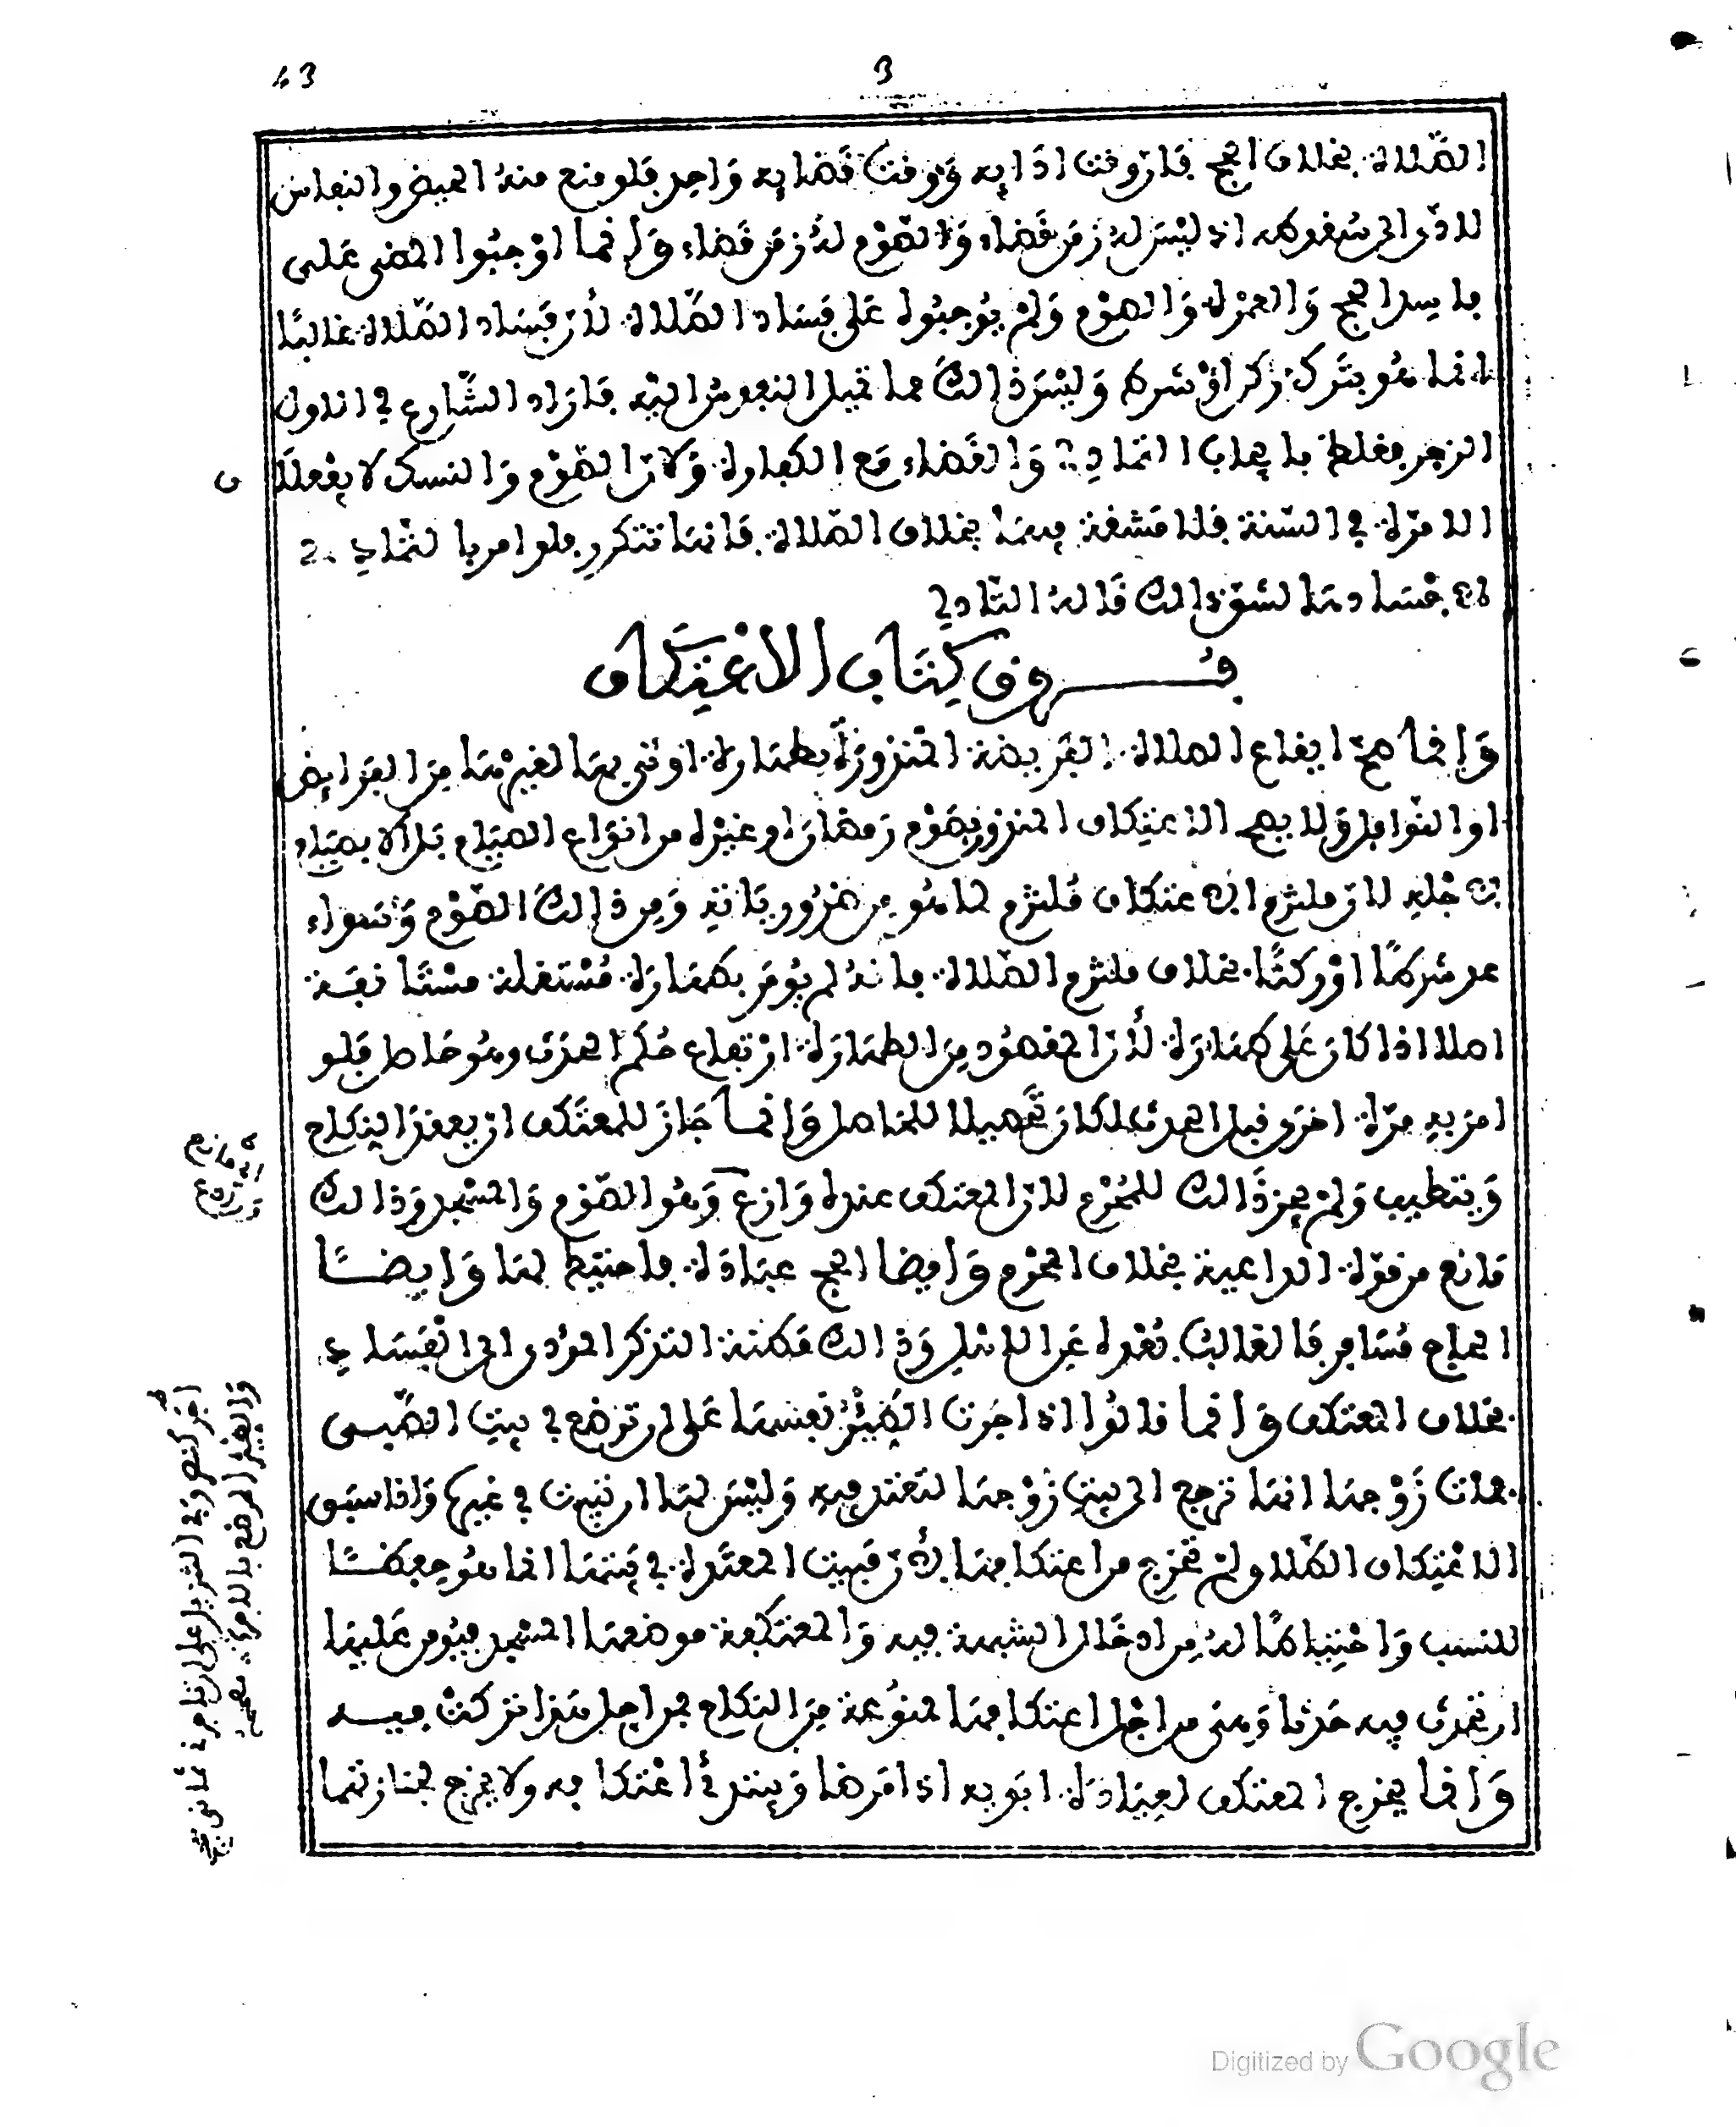 43
3
الصّلاة بخلاف الحج فإنّ وقت أدَايِه وَوقت قَضايِه وَاحِد فَلو منع منهُ الحيض والنفاس
للادّى الى سُقوطه اذ ليْسَ لهُ زمَن قَضاء وَالصّوْم لهُ زمَن قَضاء وَإنما اوْجبُوا المضي عَلى
فاسد الحج وَالعمْرة وَالصوْم وَلمْ يُوجبُوه عَلى فسَاد الصّلاة لأنّ فَسَاد الصّلاة غالبًا
انما هُو بتَرك رُكن اوْ شرط وَليْسَ ذَالكَ مما تميل النفوسُ اليْه فارَاد الشّارع في الاول
الزجر فغلظ بايجاب التمادي وَالقَضاء مَع الكفارة وَلانّ الصّوْم وَالنسك لا يفْعل
الا مرّة في السّنة فلا مَشقة فيهمَا بخلاف الصّلاة فانهَا تتكرر فلو امر بالتمادي
في فسَادهَا لشَق ذالك قَالهُ التّادلي
فُروق كِتَاب الاعْتِكَاف
وَإنما صحّ ايقاع الصلاة الفَريضة المنذورَة بطهَارة نوى بهَا لغيْرهَا مِنَ الفرَايض
او النّوافل وَلا يصح الاعتِكاف المنذور بصَوْم رَمضان او غيْرهِ من انوَاع الصيَام بَل الا بصيَام
من اجْله لان ملتزم الاعتكاف مُلتزم لما هُو مِن ضرُوريَاتهِ وَمِن ذالكَ الصّوْم وَسَواء
عد شرطًا اوْ ركنًا بخلاف ملتزم الصّلاة فانهُ لم يُومَر بطهَارة مُسْتقلة مسْتانفَة
اصلا اذا كان عَلى طهَارة لأنّ المقصُود مِنَ الطهَارة ارْتفاع حُكم الحدَث وهُو حَاصل فلو
امرَ بهِ مرّة اخرَى قبل الحدث لكانَ تحصيلا للحَاصل وَإنما جَازَ للمعتَكف ان يعقد النِكاح
وَيتطيب وَلمْ يجز ذَالك للمحْرم لانّ المعتكف عندهُ وَازع وَهُو الصّوم وَالمسْجد وَذالك
مَانع من قوّة الداعية بخلاف المحْرم وَايضا الحج عبَادَة فاحتيط لهَا وَايضا
الحاج مُسَافر فَالغَالب بُعْدهُ عَن الاهْل وَذالك مَظنة التذكر المؤدى الى الفَسَاد
بخلاف المعتكف وَانما قالوُا اذا اجرَت الظئْرُ نفسهَا عَلى ان ترضع في بيت الصّبي
فمات زَوْجهَا انهَا ترجع الى بيت زَوْجهَا لتَعتد فيهِ وَليْسَ لهَا ان تبيت في غيْرهِ وَاذا سبَق
الاعْتِكاف الطّلاق لمْ تخرُج من اعتكافهَا لانّ مَبيت المعتَدة في بَيتهَا انما هُو حِفظا
للنسب وَاحْتِياطًا لهُ مِن ادخَال الشبهة فيه وَالمعتكفة موضعهَا المسْجد فيُومن عَليهَا
ان تحدِث فيه حَدثا وَهِي من اجْل اعتكافهَا ممنوُعة مِنَ النكاح فمن اجل هَذا تركتْ فيه
وَإنما يخرج المعتكف لعيَادَة ابوَيه اذا مَرضا وَيبتدئ اعْتكافه ولا يخرج لجنازتهما